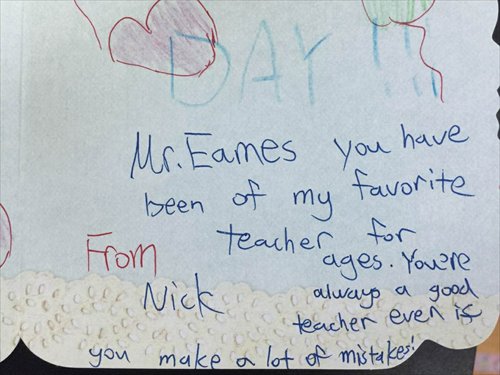 DAY!!!
Mr. Eames you have
been of my favorite
teacher for
ages. You're
always a good
teacher even is
you make a lot of mistakes!
From
Nick